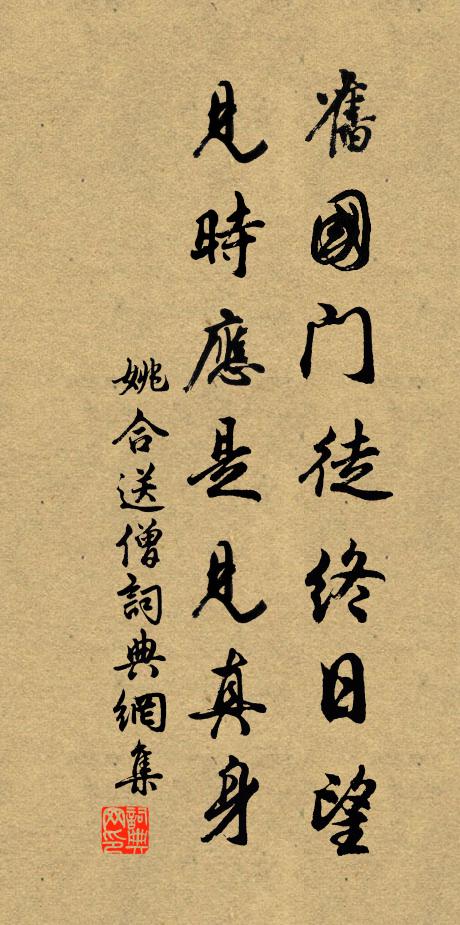 舊國門徒終日望
見時應是見真身
姚合送僧詞典網集
詞典
网印